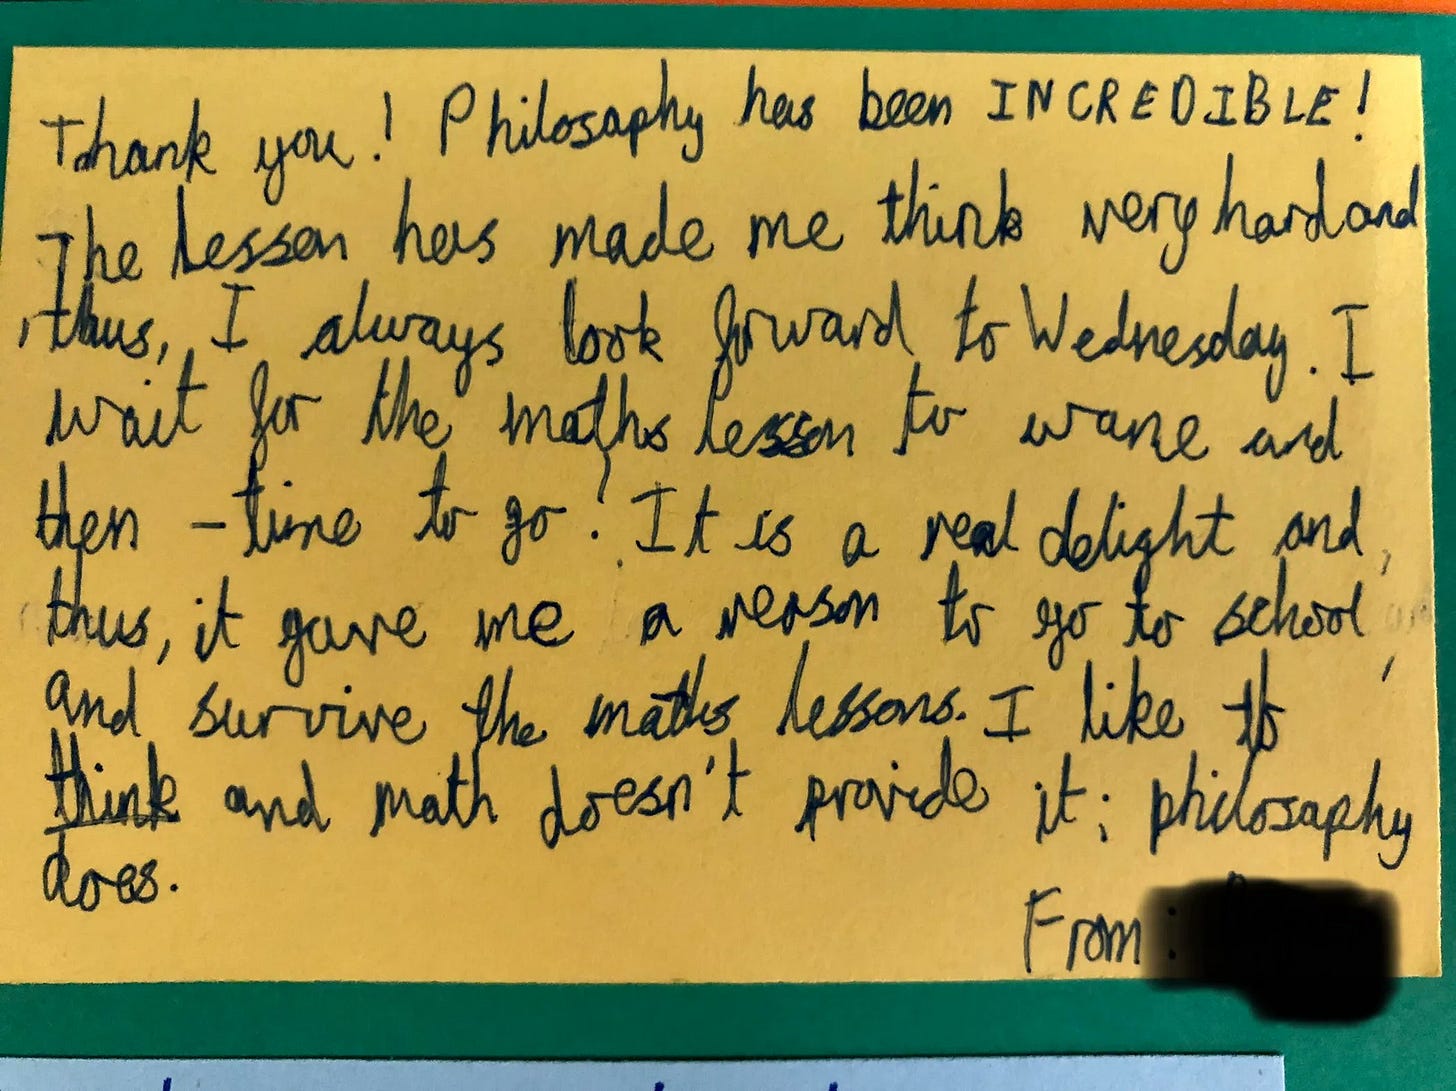 Thank you! Philosaphy has been INCREDIBLE!
The lesson has made me think very hard and
thus, I always look forward to Wednesday. I
wait for the maths lesson to wane and
then - time to go! It is a real delight and,
thus, it gave me a reason to go to school,
and survive the maths lessons. I like to
think and math doesn't provide it; philosaphy
does.
From: